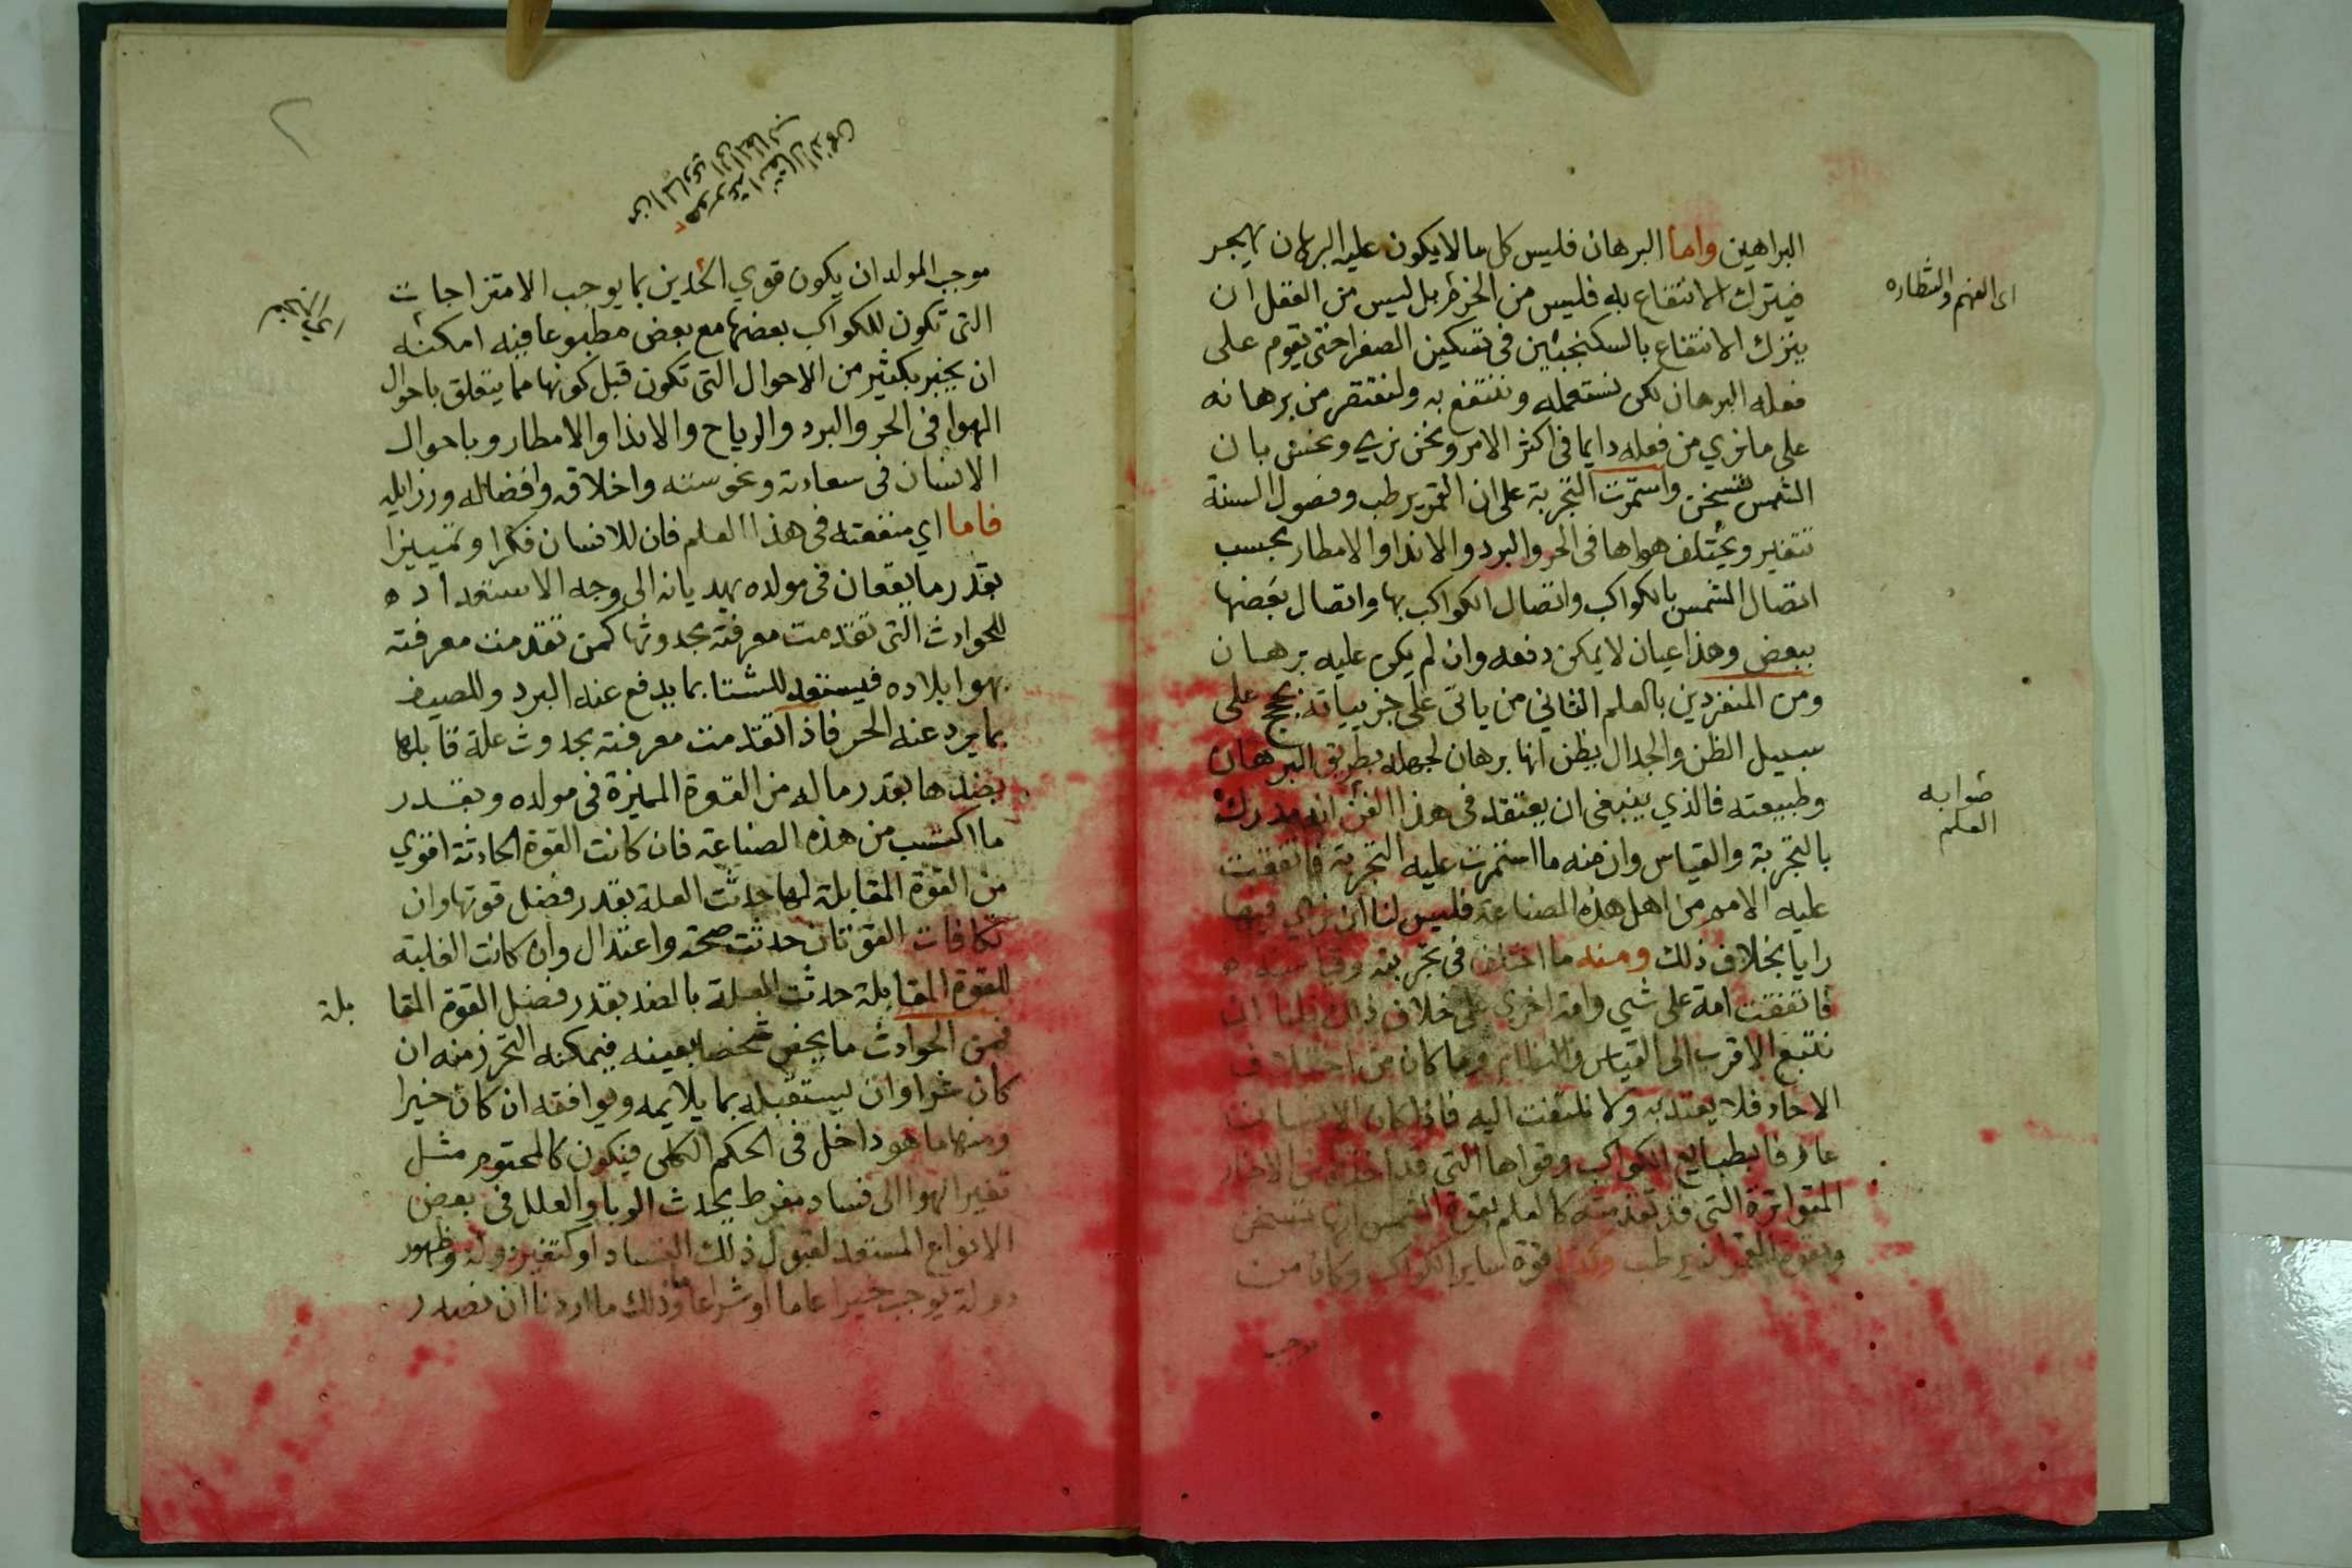 البراهين واما البرهان فليس كل ما لا يكون عليه البرهان يهجر
فيترك الانتفاع به فليس من الحزم بل ليس من العقل ان
يترك الانتفاع بالسكنجبين في تسكين الصفرا حتى يقوم على
فعله البرهان لكن نستعمله وننتفع به ولنقتصر من برهانه
على ما نري من فعله دايما في اكثر الامر ونحن نري ونحس بان
الشمس تسخن واستمرت التجربة على ان القمر يرطب وفصول السنة
تتغير ويختلف هواها في الحر والبرد والاندا والامطار بحسب
اتصال الشمس بالكواكب واتصال الكواكب بها واتصال بعضها
ببعض وهذا عيان لا يمكن دفعه وان لم يكن عليه برهان
ومن المنفردين بالعلم الثاني من ياتي على جزيياته بحجج على
سبيل الظن والجدال يظن انها برهان لجهله بطريق البرهان
وطبيعته فالذي ينبغي ان يعتقد في هذا الفن انه مدرك
بالتجربة والقياس وان منه ما استمرت عليه التجربة فاتفقت
عليه الامم من اهل هذه الصناعة فليس لنا ان نري فيها
رايا بخلاف ذلك ومنه ما اختلف في تجربته وقياسه
فاتفقت امة على شي وامة اخري على خلاف ذلك فلنا ان
نتبع الاقرب الى القياس وما كان من اختلاف
الاحاد فلا يعتد به ولا نلتفت اليه فاذا كان الانسان
عارفا بطبايع الكواكب وقواها التي قد من الاخبار
المتواترة التي قد تقدمته كالعلم بقوة الشمس انها تسخن
وبقوة القمر انه يرطب وكذا قوة ساير الكواكب وكان من
موجب
اى الفهم
صوابه
العلم
موجب المولد ان يكون قوي الحدين بما يوجب الامتزاجات
التى تكون للكواكب بعضها مع بعض مطبوعا فيه امكنه
ان يخبر بكثير من الاحوال التى تكون قبل كونها مما يتعلق باحوال
الهوا في الحر والبرد والرياح والاندا والامطار وباحوال
الانسان في سعادته ونحوسته واخلاقه وافضاله ورزايله
فاما اي منفعته في هذا العلم فان للانسان فكرا وتمييزا
بقدر ما يقعان في مولده يهديانه الى وجه الاستعداد ه
للحوادث التى تقدمت معرفته بحدوثها كمن تقدمت معرفته
بهوا بلاده فيستعد للشتا بما يدفع عنه البرد وللصيف
بما يرد عنه الحر فاذا تقدمت معرفته بحدوث علة قابلها
بضدها بقدر ما له من القوة المميزة في مولده وبقدر
ما اكتسب من هذه الصناعة فان كانت القوة الحادثة اقوي
من القوة المقابلة لها حدثت العلة بقدر فضل قوتها وان
تكافات القوتان حدثت صحة واعتدال وان كانت الغلبة
للقوة المقابلة حدثت العلة بالضد بقدر فضل القوة المقا
بلة
فمن الحوادث ما يخص شخصا بعينه فيمكنه التحرز منه ان
كان شرا وان يستقبله بما يلايمه ويوافقه ان كان خيرا
ومنها ما هو داخل في الحكم الكلى فيكون كالمحتوم مثل
تغير الهوا الى فساد مفرط يحدث الوبا والعلل في بعض
الانواع المستعد لقبول ذلك الفساد او كتغير دولة وظهور
دولة يوجب خيرا عاما او شرا عاما وذلك ما اردنا ان نصدر